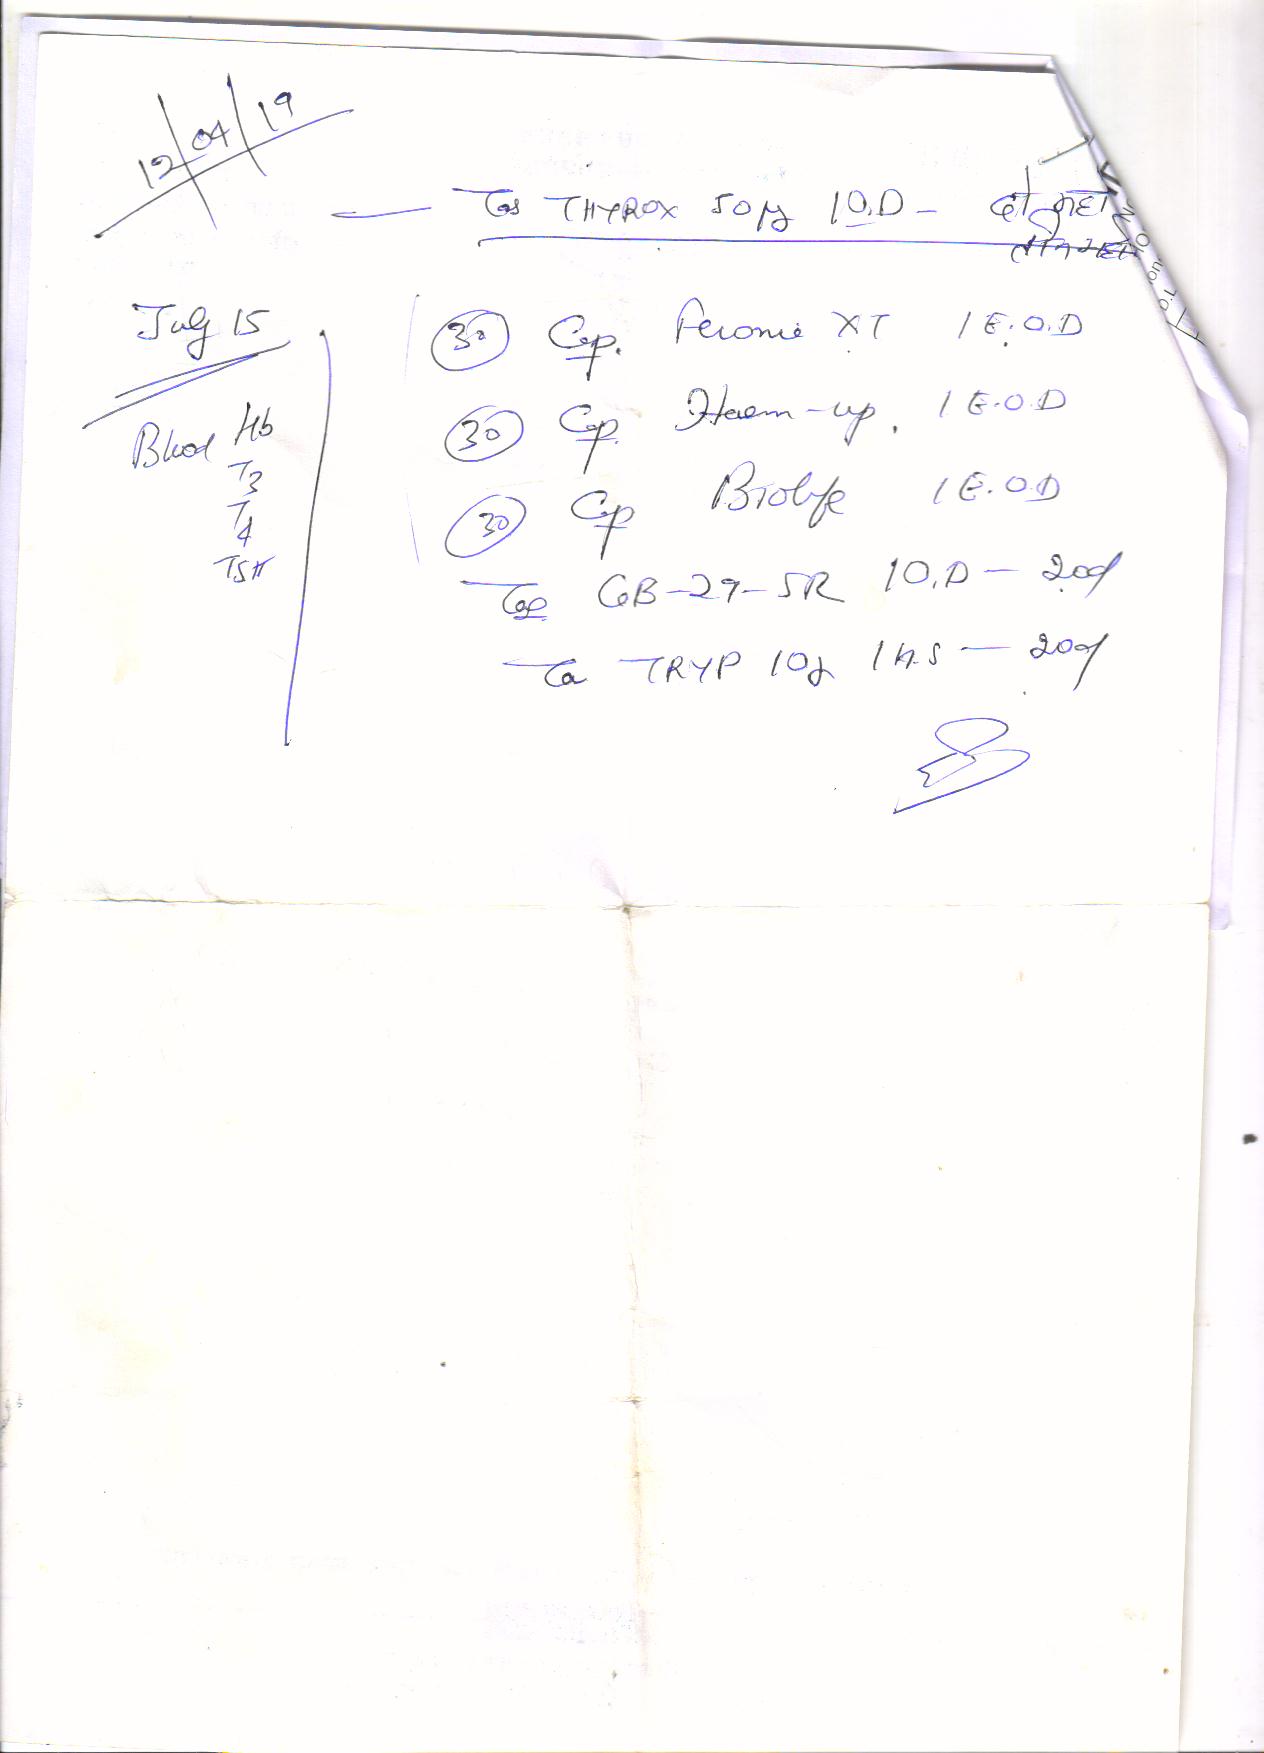 12/04/19
Tab THYROX 50μg 1 O.D –
July 15
Blood Hb
T3
T4
TSH
30 Cap. Feronie XT 1 E.O.D
30 Cap Haem-up. 1 E.O.D
30 Cap Biolife 1 E.O.D
Tab GB-29-SR 1 O.D – 20d
Ta TRYP 10g 1 H.S – 20d